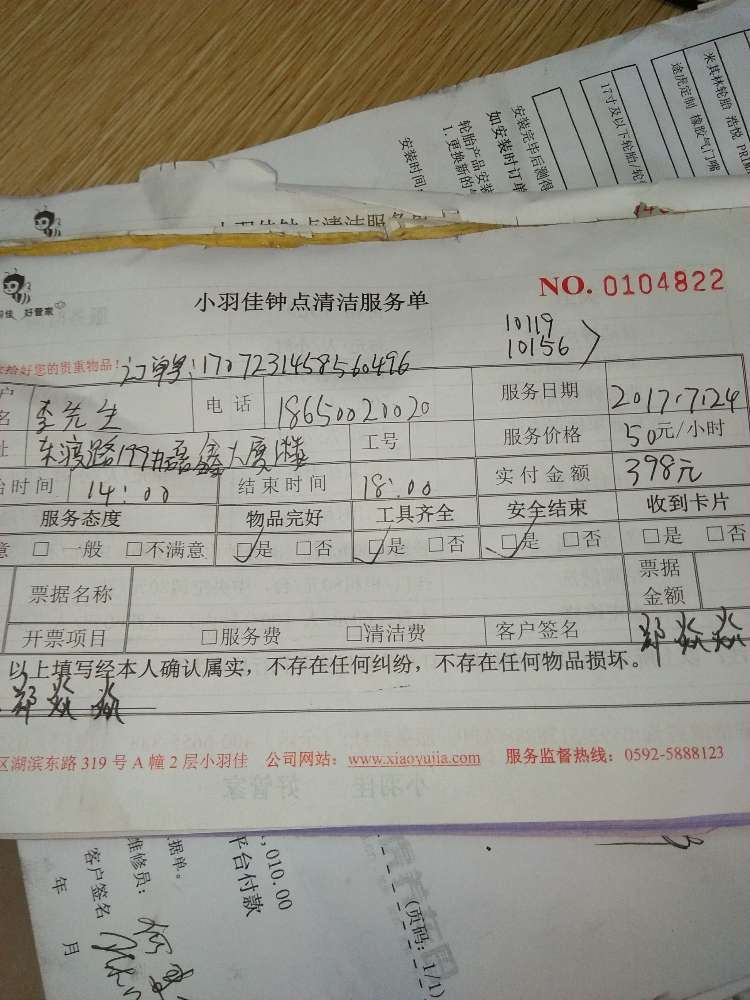 米其林轮胎 浩悦 PRIM
途虎定制 橡胶气门嘴
17寸及以下轮胎/轮
安装完毕后测得
如安装时订单
轮胎产品安装
1.更换新的
安装时间:
小羽佳钟点清洁服务单
小羽佳钟点清洁服务单
NO. 0104822
佳 好管家
10119
10156
给好您的贵重物品!
订单号:1707231458560496
户名 李先生 电话 18650020020 服务日期 2017.7.24
址 东渡路199 磊鑫大厦 工号 服务价格 50元/小时
始时间 14:00 结束时间 18:00 实付金额 398元
服务态度 物品完好 工具齐全 安全结束 收到卡片
意 □一般 □不满意 □是 □否 □是 □否 □是 □否 □是 □否
票据名称 票据金额
开票项目 □服务费 □清洁费 客户签名 郑焱焱
以上填写经本人确认属实,不存在任何纠纷,不存在任何物品损坏。
郑焱焱
区湖滨东路 319 号 A 幢 2 层小羽佳 公司网站:www.xiaoyujia.com 服务监督热线:0592-5888123
小羽佳 好管家
,010.00
平台付款
据单。
维修员:
客户签名
年 月
(页码:1/1)